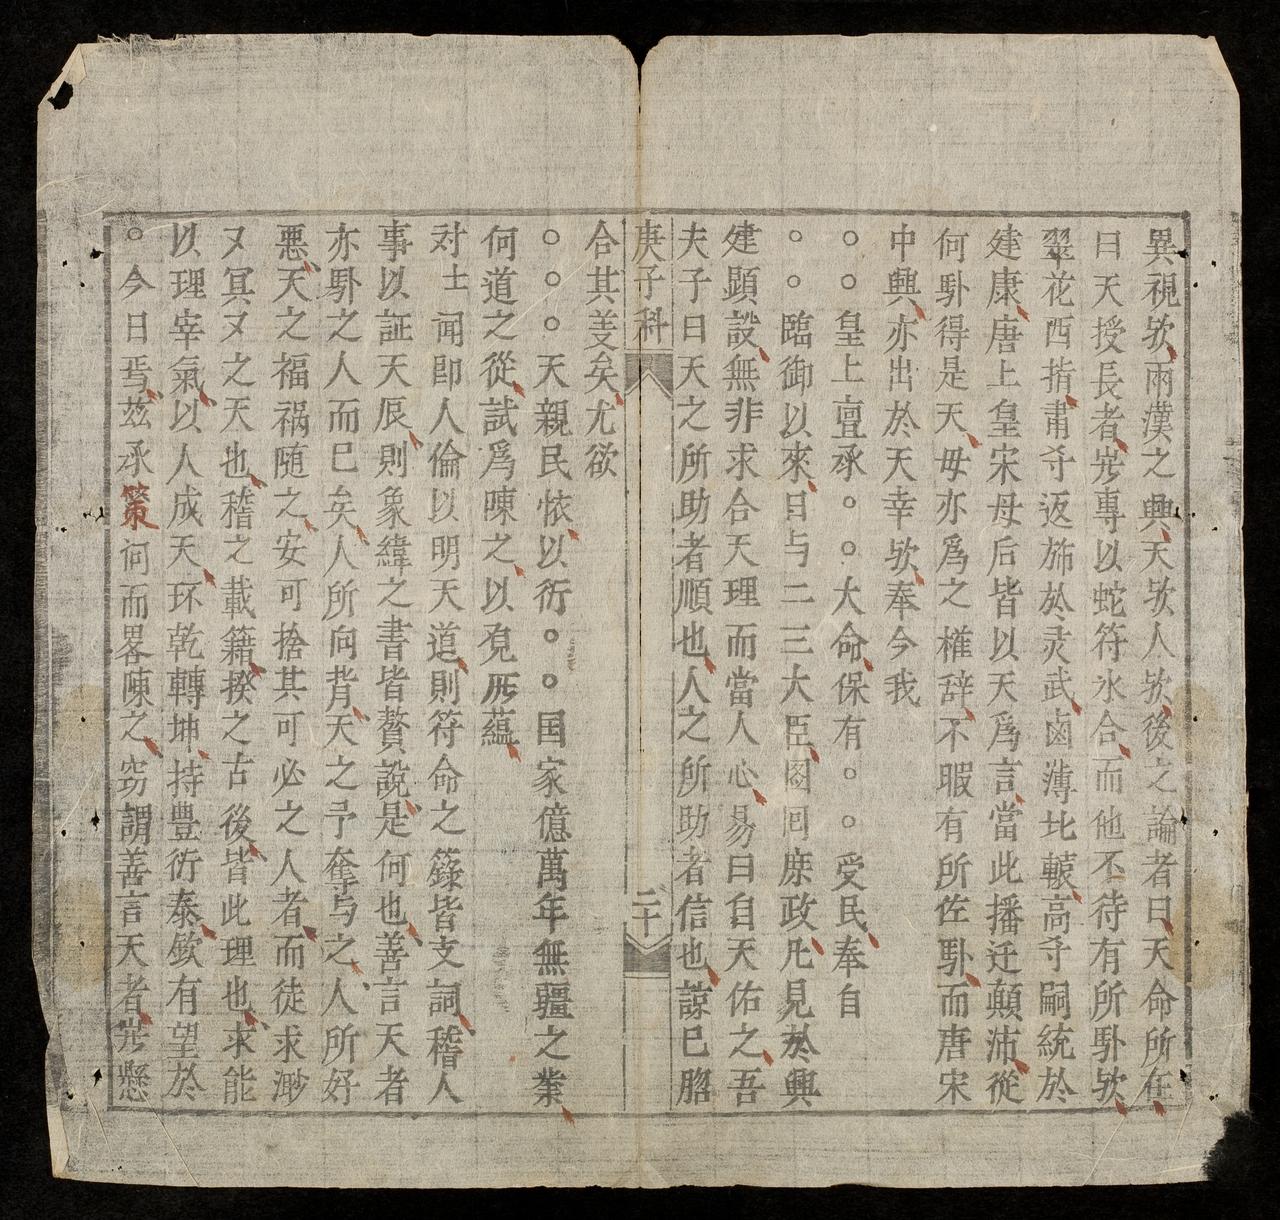 異視欤兩漢之興天欤人欤後之論者曰天命所在
曰天授長者岂專以蛇符氷合而他不待有所馱欤
翠花西指肅寺返斾於灵武鹵薄北轅高寺嗣統於
建康唐上皇宋母后皆以天爲言當此播迁顛沛從
何馱得是天毋亦爲之権辞不暇有所佐馱而唐宋
中興亦出於天幸欤奉今我
○○皇上亶承○○大命保有○○受民奉自
○○臨御以來日与二三大臣图囘庶政凢見於興
建顕設無非求合天理而當人心易曰自天佑之吾
夫子曰天之所助者順也人之所助者信也諒已脗
庚子科 二十
合其妛矣尤欲
○○○天親民悇以衍○○国家億萬年無疆之業
何道之從試爲陳之以覌所蘊
对士 闻卽人倫以明天道則符命之籙皆支詞稽人
事以証天辰則象緯之書皆贅說是何也善言天者
亦馱之人而已矣人所向背天之予奪与之人所好
惡天之福祸随之安可捨其可必之人者而徒求渺
又冥又之天也稽之載籍揆之古後皆此理也求能
以理宰氣以人成天环乾轉坤持豊衍泰欽有望於
○今日焉茲承策何而畧陳之窃謂善言天者岂懸